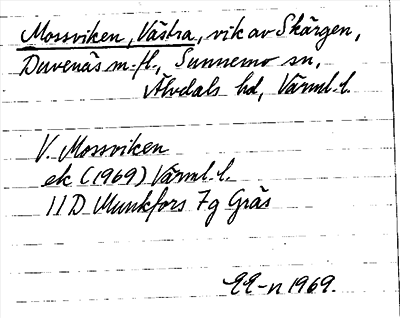 Mossviken, Västra, vik av Skärgen,
Duvenäs m.fl., Sunnemo sn,
Älvdals hd, Värml. l.
V. Mossviken
ek (1969) Värml. l.
11D Munkfors 7g Gräs
1969.